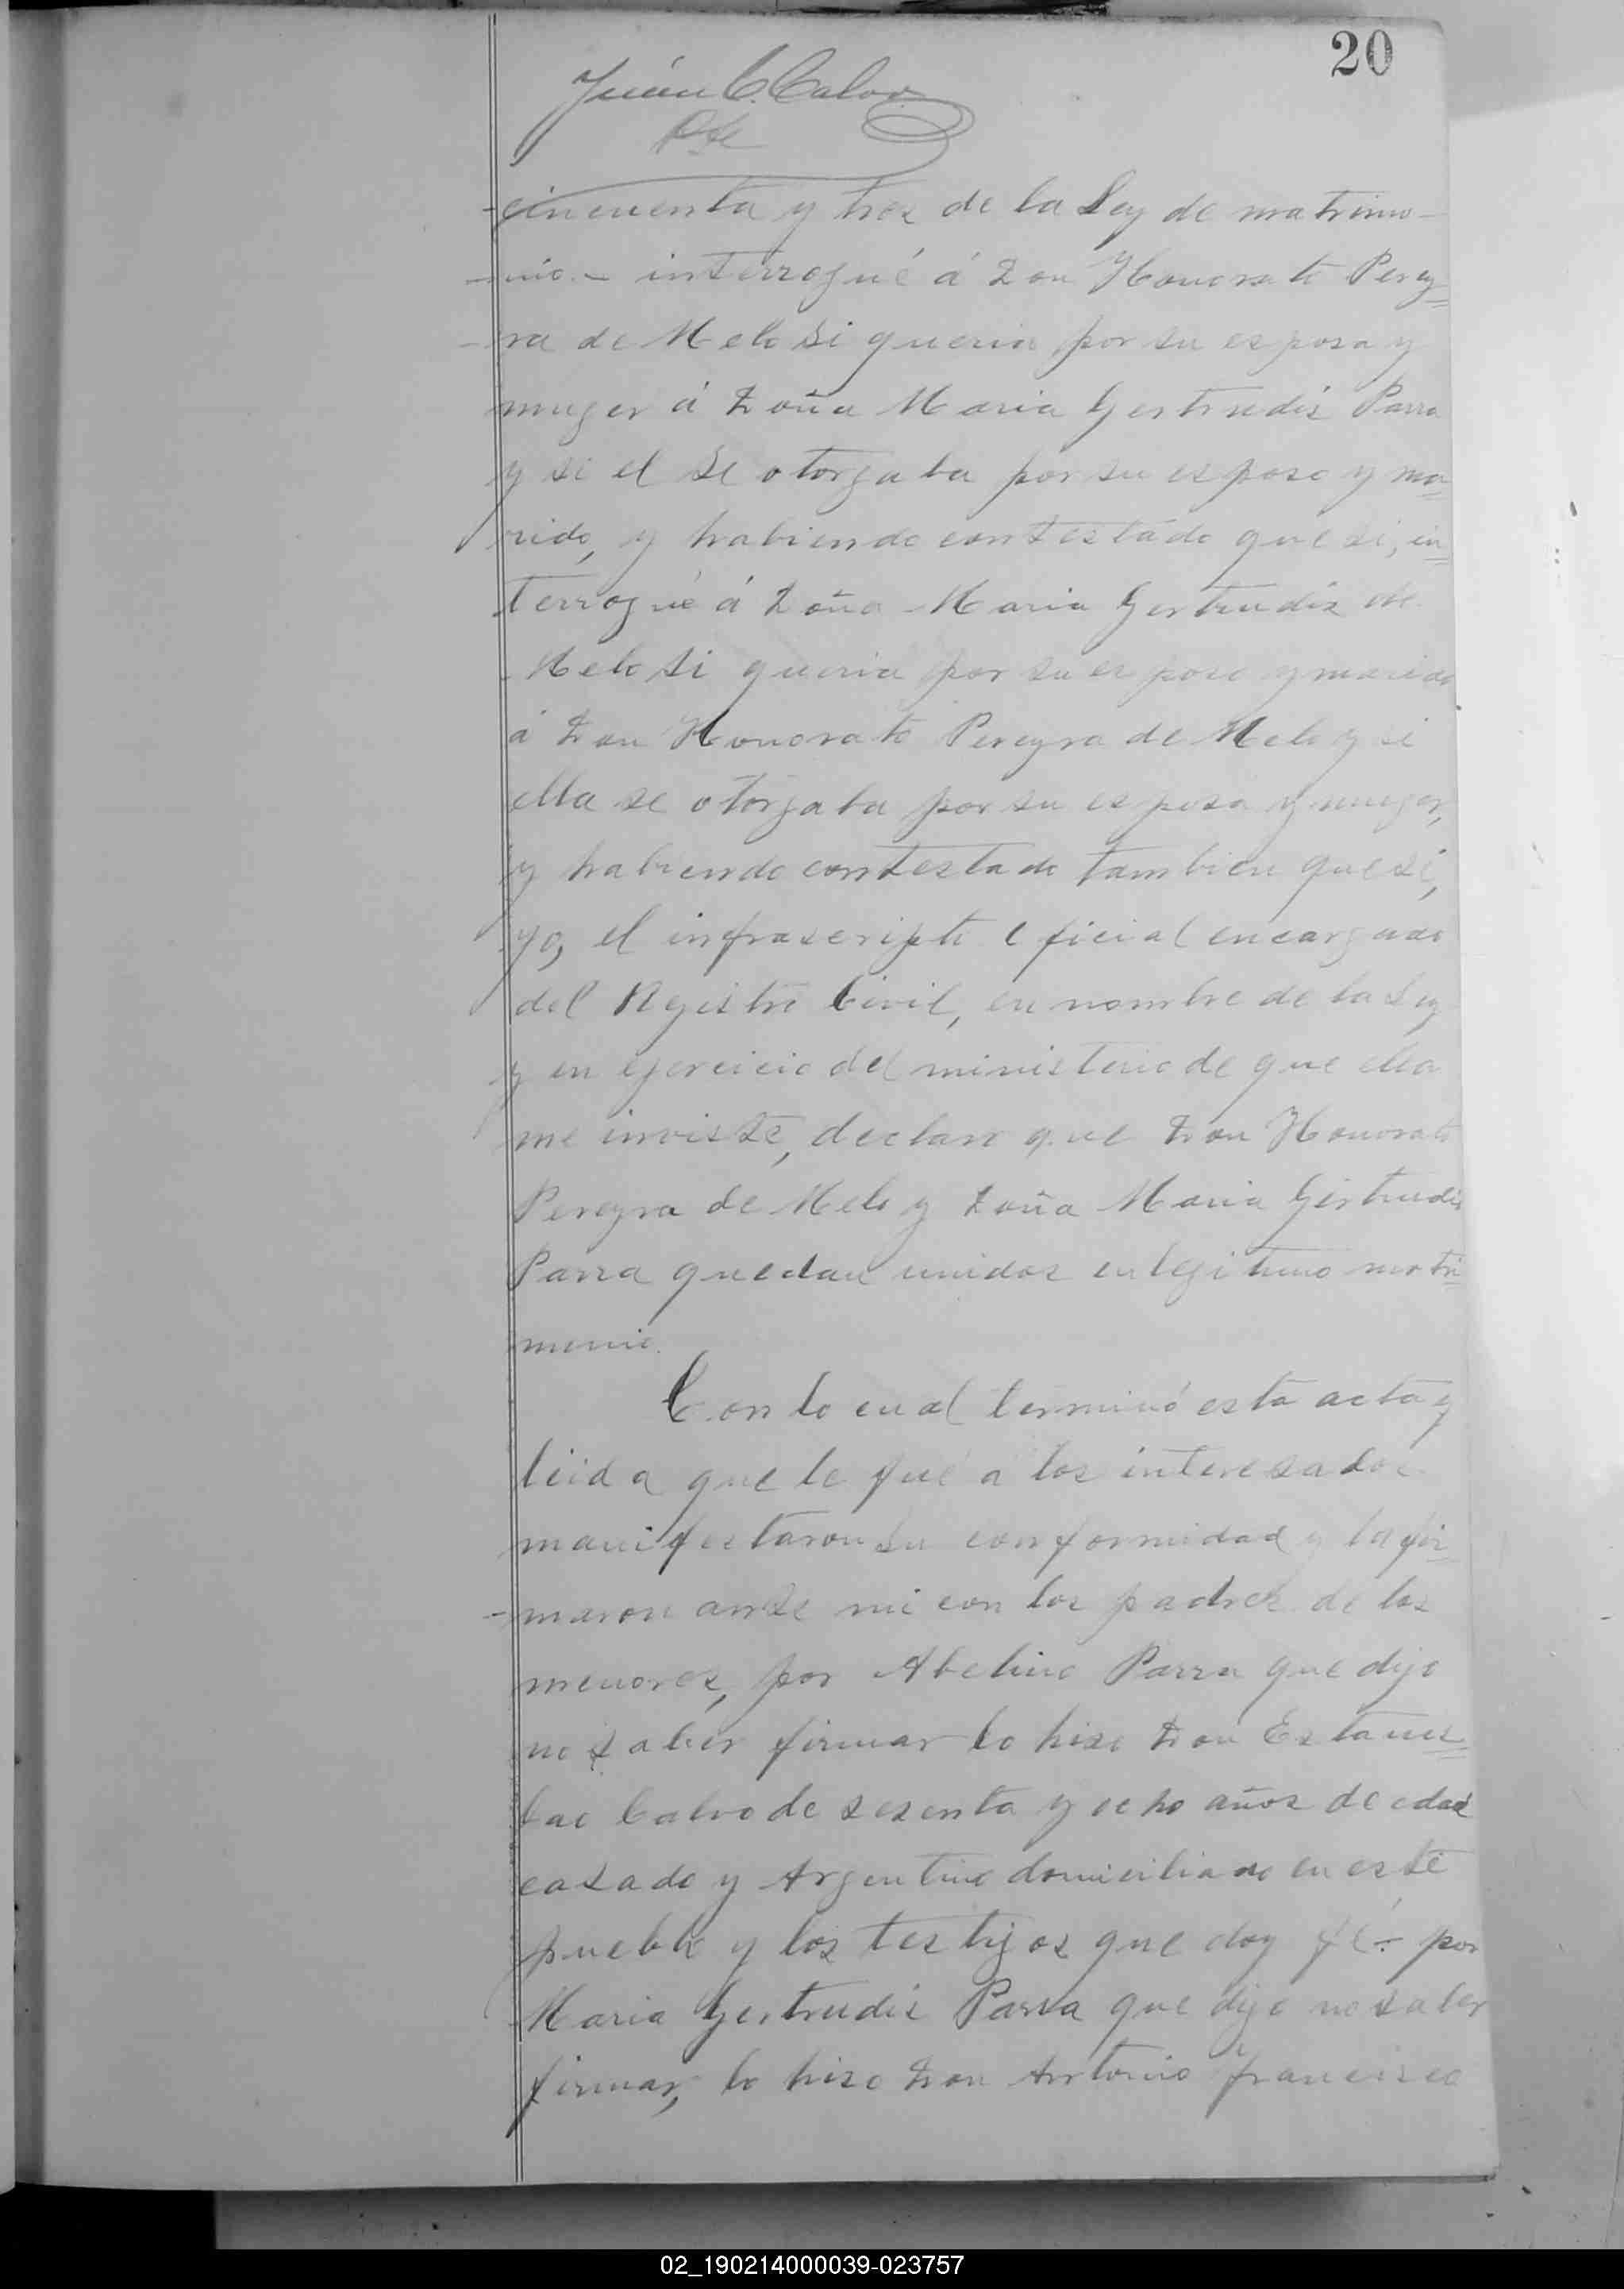 20
Juan C. Calvo
cincuenta y tres de la Ley de matrimo-
-nio.- interrogué á Don Honorato Perey=
-ra de Melo si queria por su esposa y
muger á Doña Maria Gertrudis Parra
y si el se otorgaba por su esposo y ma=
rido, y habiendo contestado que si, in=
terrogué á Doña Maria Gertrudis de
Melo si queria por su esposo y marido
á Don Honorato Pereyra de Melo y si
ella se otorgaba por su esposa y muger,
y habiendo contestado tambien que si,
yo, el infrascripto Oficial encargado
del Registro Civil, en nombre de la Ley
y en ejercicio del ministerio de que ella
me inviste, declaro que Don Honorato
Pereyra de Melo y Doña Maria Gertrudis
Parra quedan unidos en legitimo matri=
monio.
Con lo cual terminó esta acta y
leida que le fué a los interesados
manifestaron su conformidad y la fir=
-maron ante mi con los padres de los
menores, por Abelino Parra que dijo
no saber firmar lo hiso Don Estanis=
lao Calvo de sesenta y ocho años de edad
casado y Argentino domiciliado en este
pueblo y los testigos que doy fé.- por
Maria Gertrudis Parra que dijo no saber
firmar, lo hiso Don Antonio Francisco
02_190214000039-023757